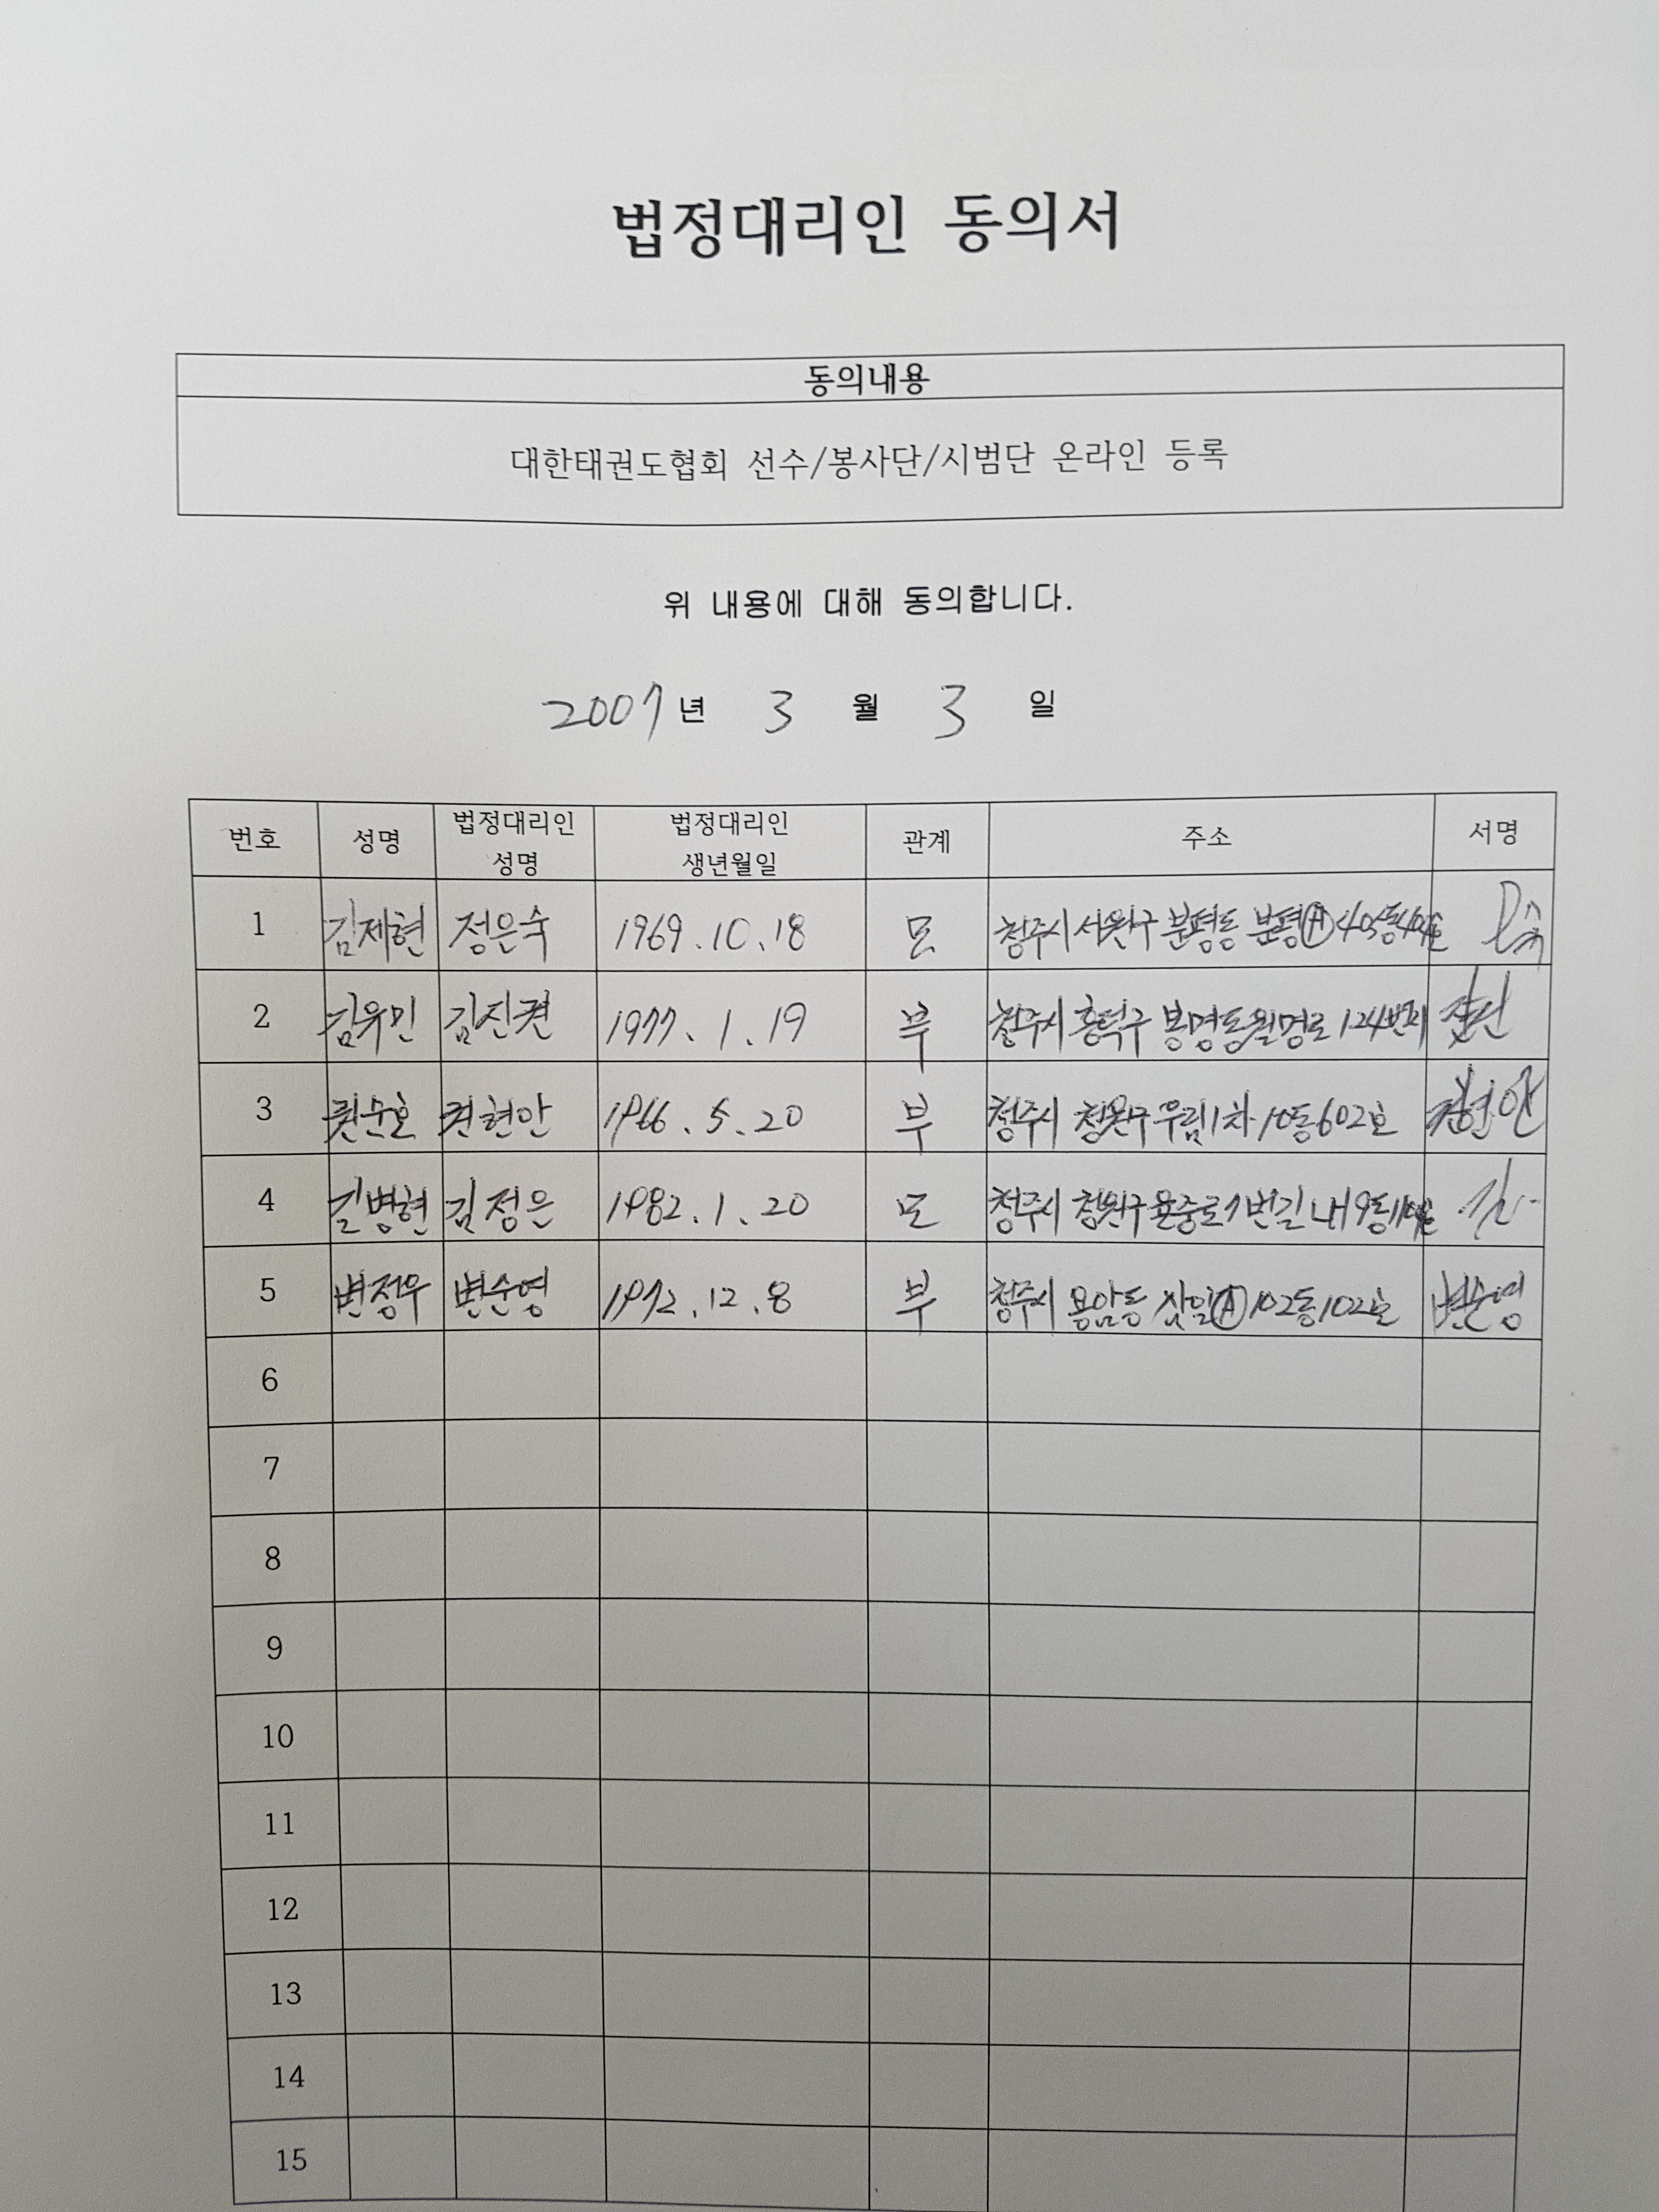 법정대리인 동의서
동의내용
대한태권도협회 선수/봉사단/시범단 온라인 등록
위 내용에 대해 동의합니다.
2007년 3 월 3 일
번호 성명 법정대리인 성명 법정대리인 생년월일 관계 주소 서명
1 김제현 정은숙 1969.10.18 모 청주시 서원구 분평동 분평Ⓐ 405동
2 김유민 김진권 1977.1.19 부 청주시 흥덕구 봉명동 월명로 124번지
3 권순호 권현안 1966.5.20 부 청주시 청원구 우림1차 10동 602호 권현안
4 길병현 김정은 1982.1.20 모 청주시 청원구 7번길 내 9동
5 변정우 변순영 1972.12.8 부 청주시 용암동 삼일Ⓐ 102동 102호 변순영
6
7
8
9
10
11
12
13
14
15